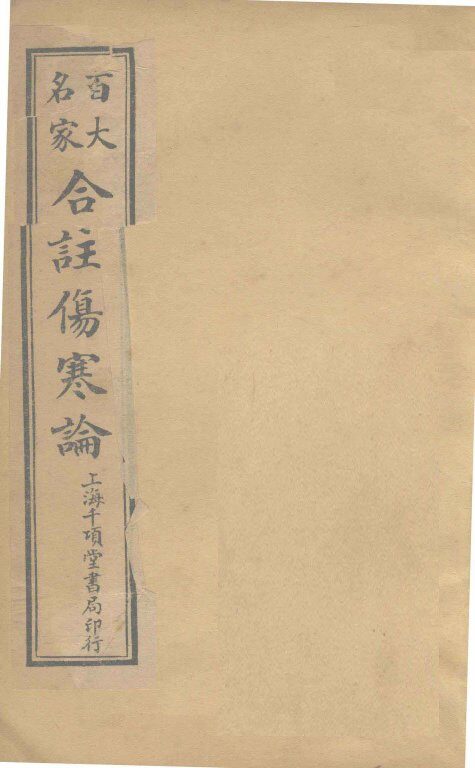 百大
名家
合註傷寒論
上海千項堂書局印行